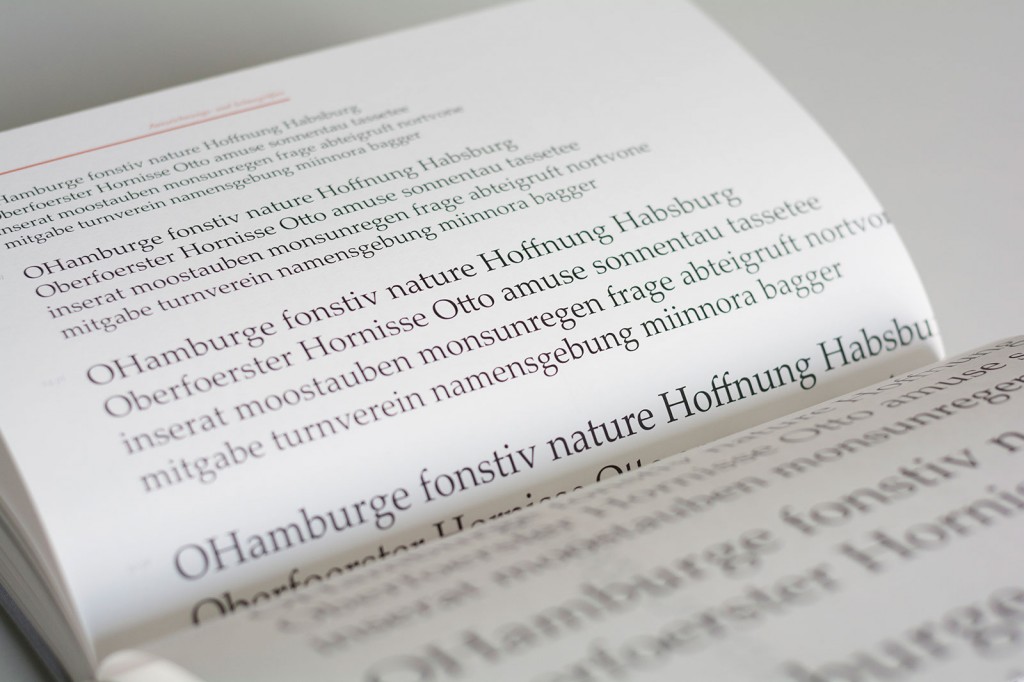 Hamburge fonstiv nature Hoffnung Habsburg
Oberfoerster Hornisse Otto amuse sonnentau tassetee
inserat moostauben monsunregen frage abteigruft nortvone
mitgabe turnverein namensgebung miinnora bagger
OHamburge fonstiv nature Hoffnung Habsburg
Oberfoerster Hornisse Otto amuse sonnentau tassetee
inserat moostauben monsunregen frage abteigruft nortvone
mitgabe turnverein namensgebung miinnora bagger
OHamburge fonstiv nature Hoffnung Habsburg
Oberfoerster Hornisse Otto amuse sonnentau tassetee
inserat moostauben monsunregen frage abteigruft nortvon
mitgabe turnverein namensgebung miinnora bagger
OHamburge fonstiv nature Hoffnung Habsbu
Oberfoerster Hornisse Otto
nature Hoffnung
Oberfoerster Hornisse Otto amuse s
inserat moostauben monsunregen
OHamburge fonstiv n
erfoerster Hornis
burge